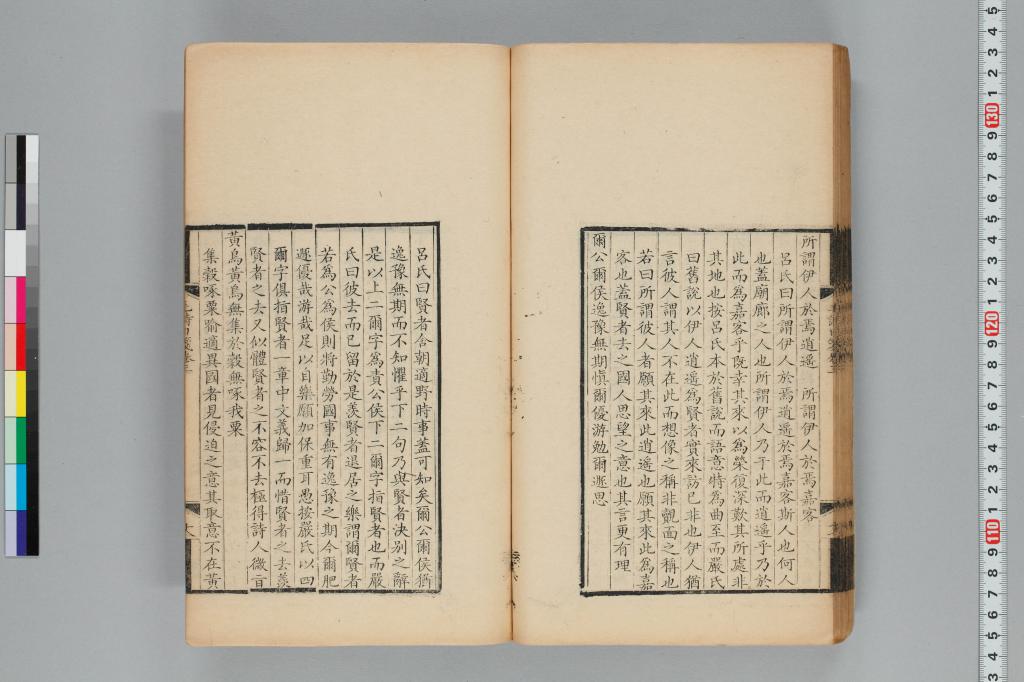 所謂伊人於焉逍遥　所謂伊人於焉嘉客
呂氏曰所謂伊人於焉逍遥於焉嘉客斯人也何人
也蓋廟廊之人也所謂伊人乃于此而逍遥乎乃於
此而為嘉客乎既幸其來以為榮復深歎其所處非
其地也按呂氏本於舊說而語意特為曲至而嚴氏
曰舊說以伊人逍遥為賢者實來訪已非也伊人猶
言彼人謂其人不在此而想像之稱非覿面之稱也
若曰所謂彼人者願其來此逍遥也願其來此為嘉
客也蓋賢者去之國人思望之意也其言更有理
爾公爾侯逸豫無期慎爾優游勉爾遯思
呂氏曰賢者舍朝適野時事蓋可知矣爾公爾侯猶
逸豫無期而不知懼乎下二句乃與賢者決别之辭
是以上二爾字為責公侯下二爾字指賢者也而嚴
氏曰彼去而已留於是羨賢者退居之樂謂爾賢者
若為公為侯則將勤勞國事無有逸豫之期今爾肥
遯優哉游哉足以自樂願加保重耳愚按嚴氏以四
爾字俱指賢者一章中文義歸一而惜賢者之去羨
賢者之去又似體賢者之不容不去極得詩人微言
黃鳥黃鳥無集於榖無啄我粟
集榖啄粟喻適異國者見侵迫之意其取意不在黃